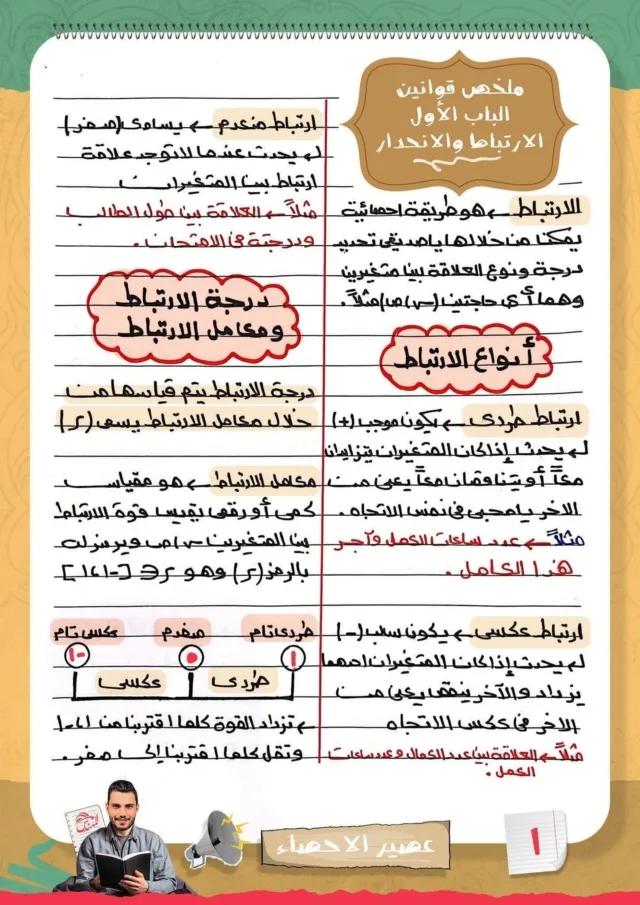 ملخص قوانين
الباب الأول
الارتباط والانحدار
الارتباط ← هو طريقة احصائية
يمكننا من خلالها ياصديقى تحديد
درجة ونوع العلاقة بين متغيرين
وهما أى حاجتين (س،ص) مثلاً.
أنواع الارتباط
ارتباط طردى ← يكون موجب (+)
يحدث إذا كان المتغيران يتزايدان
معاً أو يتناقصان معاً يعنى من
الاخر يا محبى فى نفس الاتجاه.
مثلاً ← عدد ساعات العمل وآجر
هذا العامل.
ارتباط عكسى ← يكون سالب (-)
يحدث إذا كان المتغيران احدهما
يزداد والآخر ينقص يعنى من
الاخر فى عكس الاتجاه
مثلاً ← العلاقة بين عدد العمال وعدد ساعات
العمل.
ارتباط منعدم ← يساوى (صفر)
يحدث عندما لا توجد علاقة
ارتباط بين المتغيرات
مثلاً ← العلاقة بين طول الطالب
ودرجتة فى الامتحان.
درجة الارتباط
ومعامل الارتباط
درجة الارتباط يتم قياسها من
خلال معامل الارتباط يسمى (ر)
معامل الارتباط ← هو مقياس
كمى أو رقمى يقيس قوة الارتباط
بين المتغيرين س،ص ويرمز له
بالرمز (ر) وهو ر ∈ [-1،1]
طردى تام صفرم عكسى تام
1 0 -1
طردى عكسى
← تزداد القوة كلما اقتربنا من 1،-1
وتقل كلما اقتربنا إلى صفر.
عصير الاحصاء
1